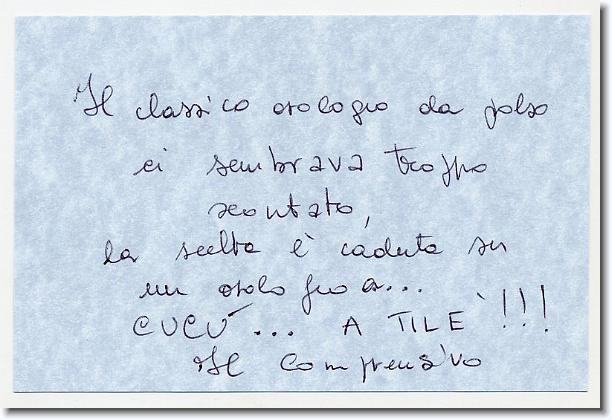 Il classico orologio da polso
ci sembrava troppo
scontato,
la scelta è caduta su
un orologio a...
CUCÚ... A TILE`!!!
Il Comprensivo